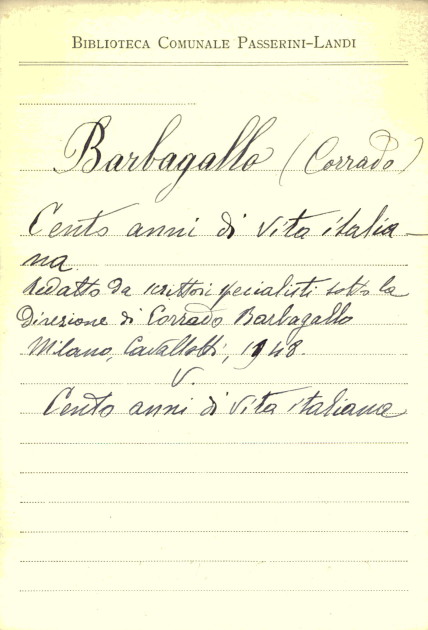 BIBLIOTECA COMUNALE PASSERINI-LANDI
Barbagallo (Corrado)
Cento anni di vita italia-
na
Redatto da scrittori specialisti sotto la
Direzione di Corrado Barbagallo
Milano, Cavallotti, 1948.
V.
Cento anni di vita italiana